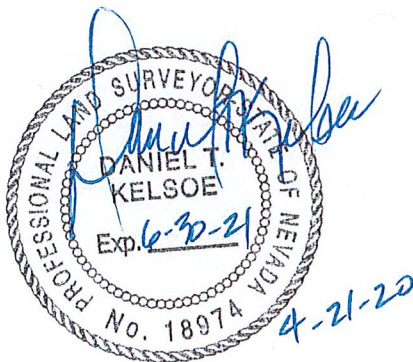 PROFESSIONAL LAND SURVEYOR-STATE OF NEVADA
DANIEL T.
KELSOE
Exp. 6-30-21
No. 18974
4-21-20